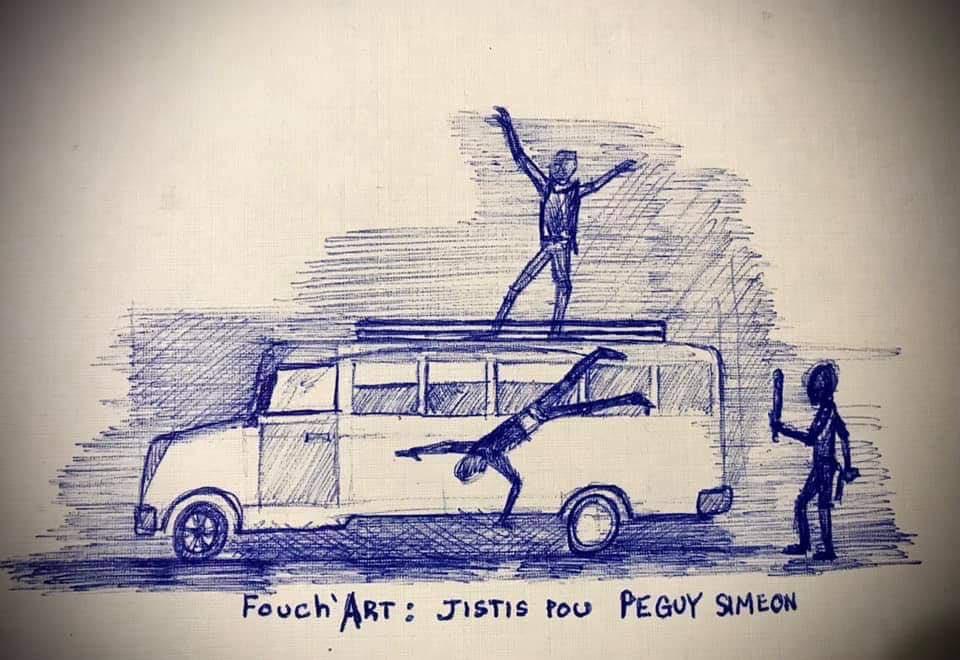 Fouch'ART : JISTIS POU PEGUY SIMEON